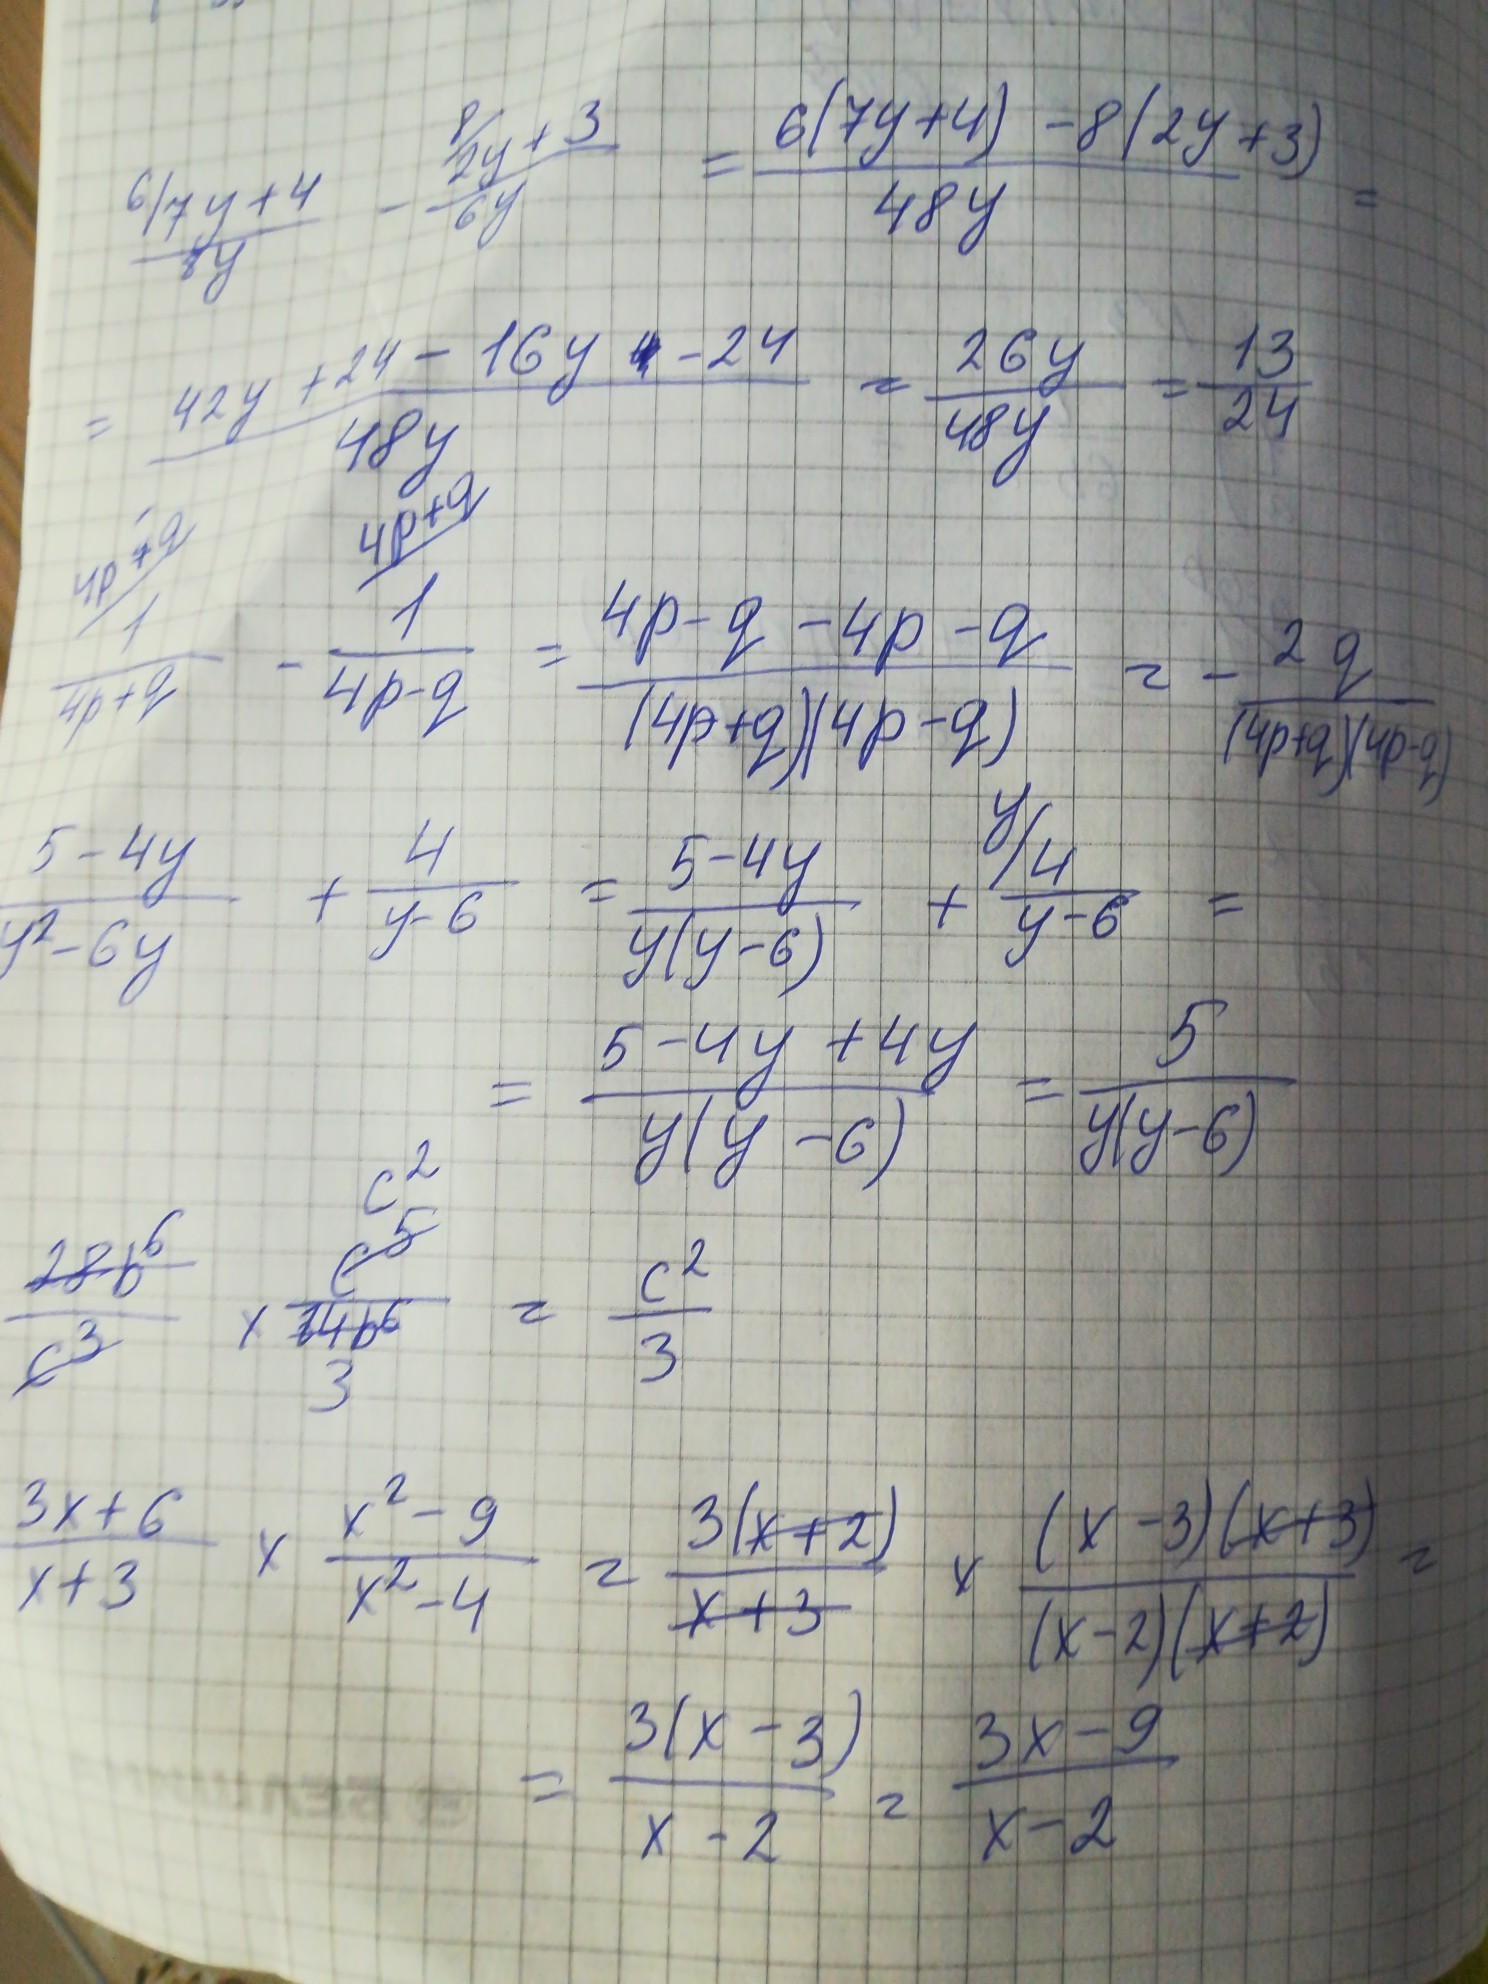 6/7y+4 / 8y - 8/2y+3 / 6y = 6(7y+4) - 8(2y+3) / 48y =
= 42y + 24 - 16y - 24 / 48y = 26y / 48y = 13 / 24
4p+q/ 4p+q/
1 / 4p+q - 1 / 4p-q = 4p-q - 4p - q / (4p+q)(4p-q) = - 2q / (4p+q)(4p-q)
5-4y / y²-6y + 4 / y-6 = 5-4y / y(y-6) + y/4 / y-6 =
= 5-4y+4y / y(y-6) = 5 / y(y-6)
c²
28b⁶ / c³ x c⁵ / 84b⁶ = c² / 3
3
3x+6 / x+3 x x²-9 / x²-4 = 3(x+2) / x+3 x (x-3)(x+3) / (x-2)(x+2) =
= 3(x-3) / x-2 = 3x-9 / x-2